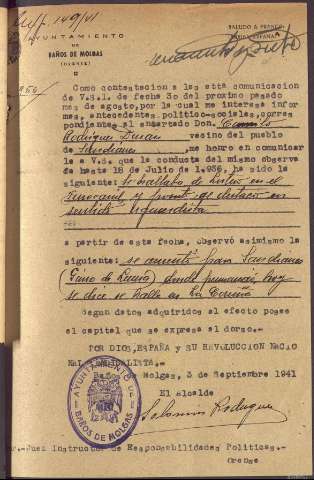 149/41
AYUNTAMIENTO
DE
BAÑOS DE MOLGAS
(ORENSE)
SALUDO A FRANCO
¡ARRIBA ESPAÑA!
Como contestacion a la atta comunicacion
de V.S.I. de fecha 30 del proximo pasado
mes de agosto, por la cual me interesa infor
mes, antecedentes politico-sociales, corres
pondientes al enmartado Don,
Rodriguez Duran vecino del pueblo
de me honro en comunicar
le a V.S. que la conducta del mismo observa
da hasta 18 de Julio de 1.936, ha sido
la siguiente: se hallaba de en el
y
sentido izquierdista
a partir de esta fecha, observó asimismo la
siguiente: se ausentó para Sandianes
(Ginzo de Limia) donde hoy
se dice se halla en La Coruña
Segun datos adquiridos al efecto posee
el capital que se expresa al dorso.-
POR DIOS, ESPAÑA y SU REVOLUCION NACIO
NAL
Baños de Molgas, 3 de Septiembre 1941
El Alcalde
Rodriguez
AYUNTAMIENTO DE
BAÑOS DE MOLGAS
Sr. Juez Instructor de Responsabilidades Politicas.-
Orense